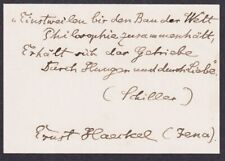 „Einstweilen bis den Bau der Welt
Philosophie zusammenhält,
Erhält sich das Getriebe
Durch Hunger und durch Liebe“.
(Schiller)
Ernst Haeckel (Jena)